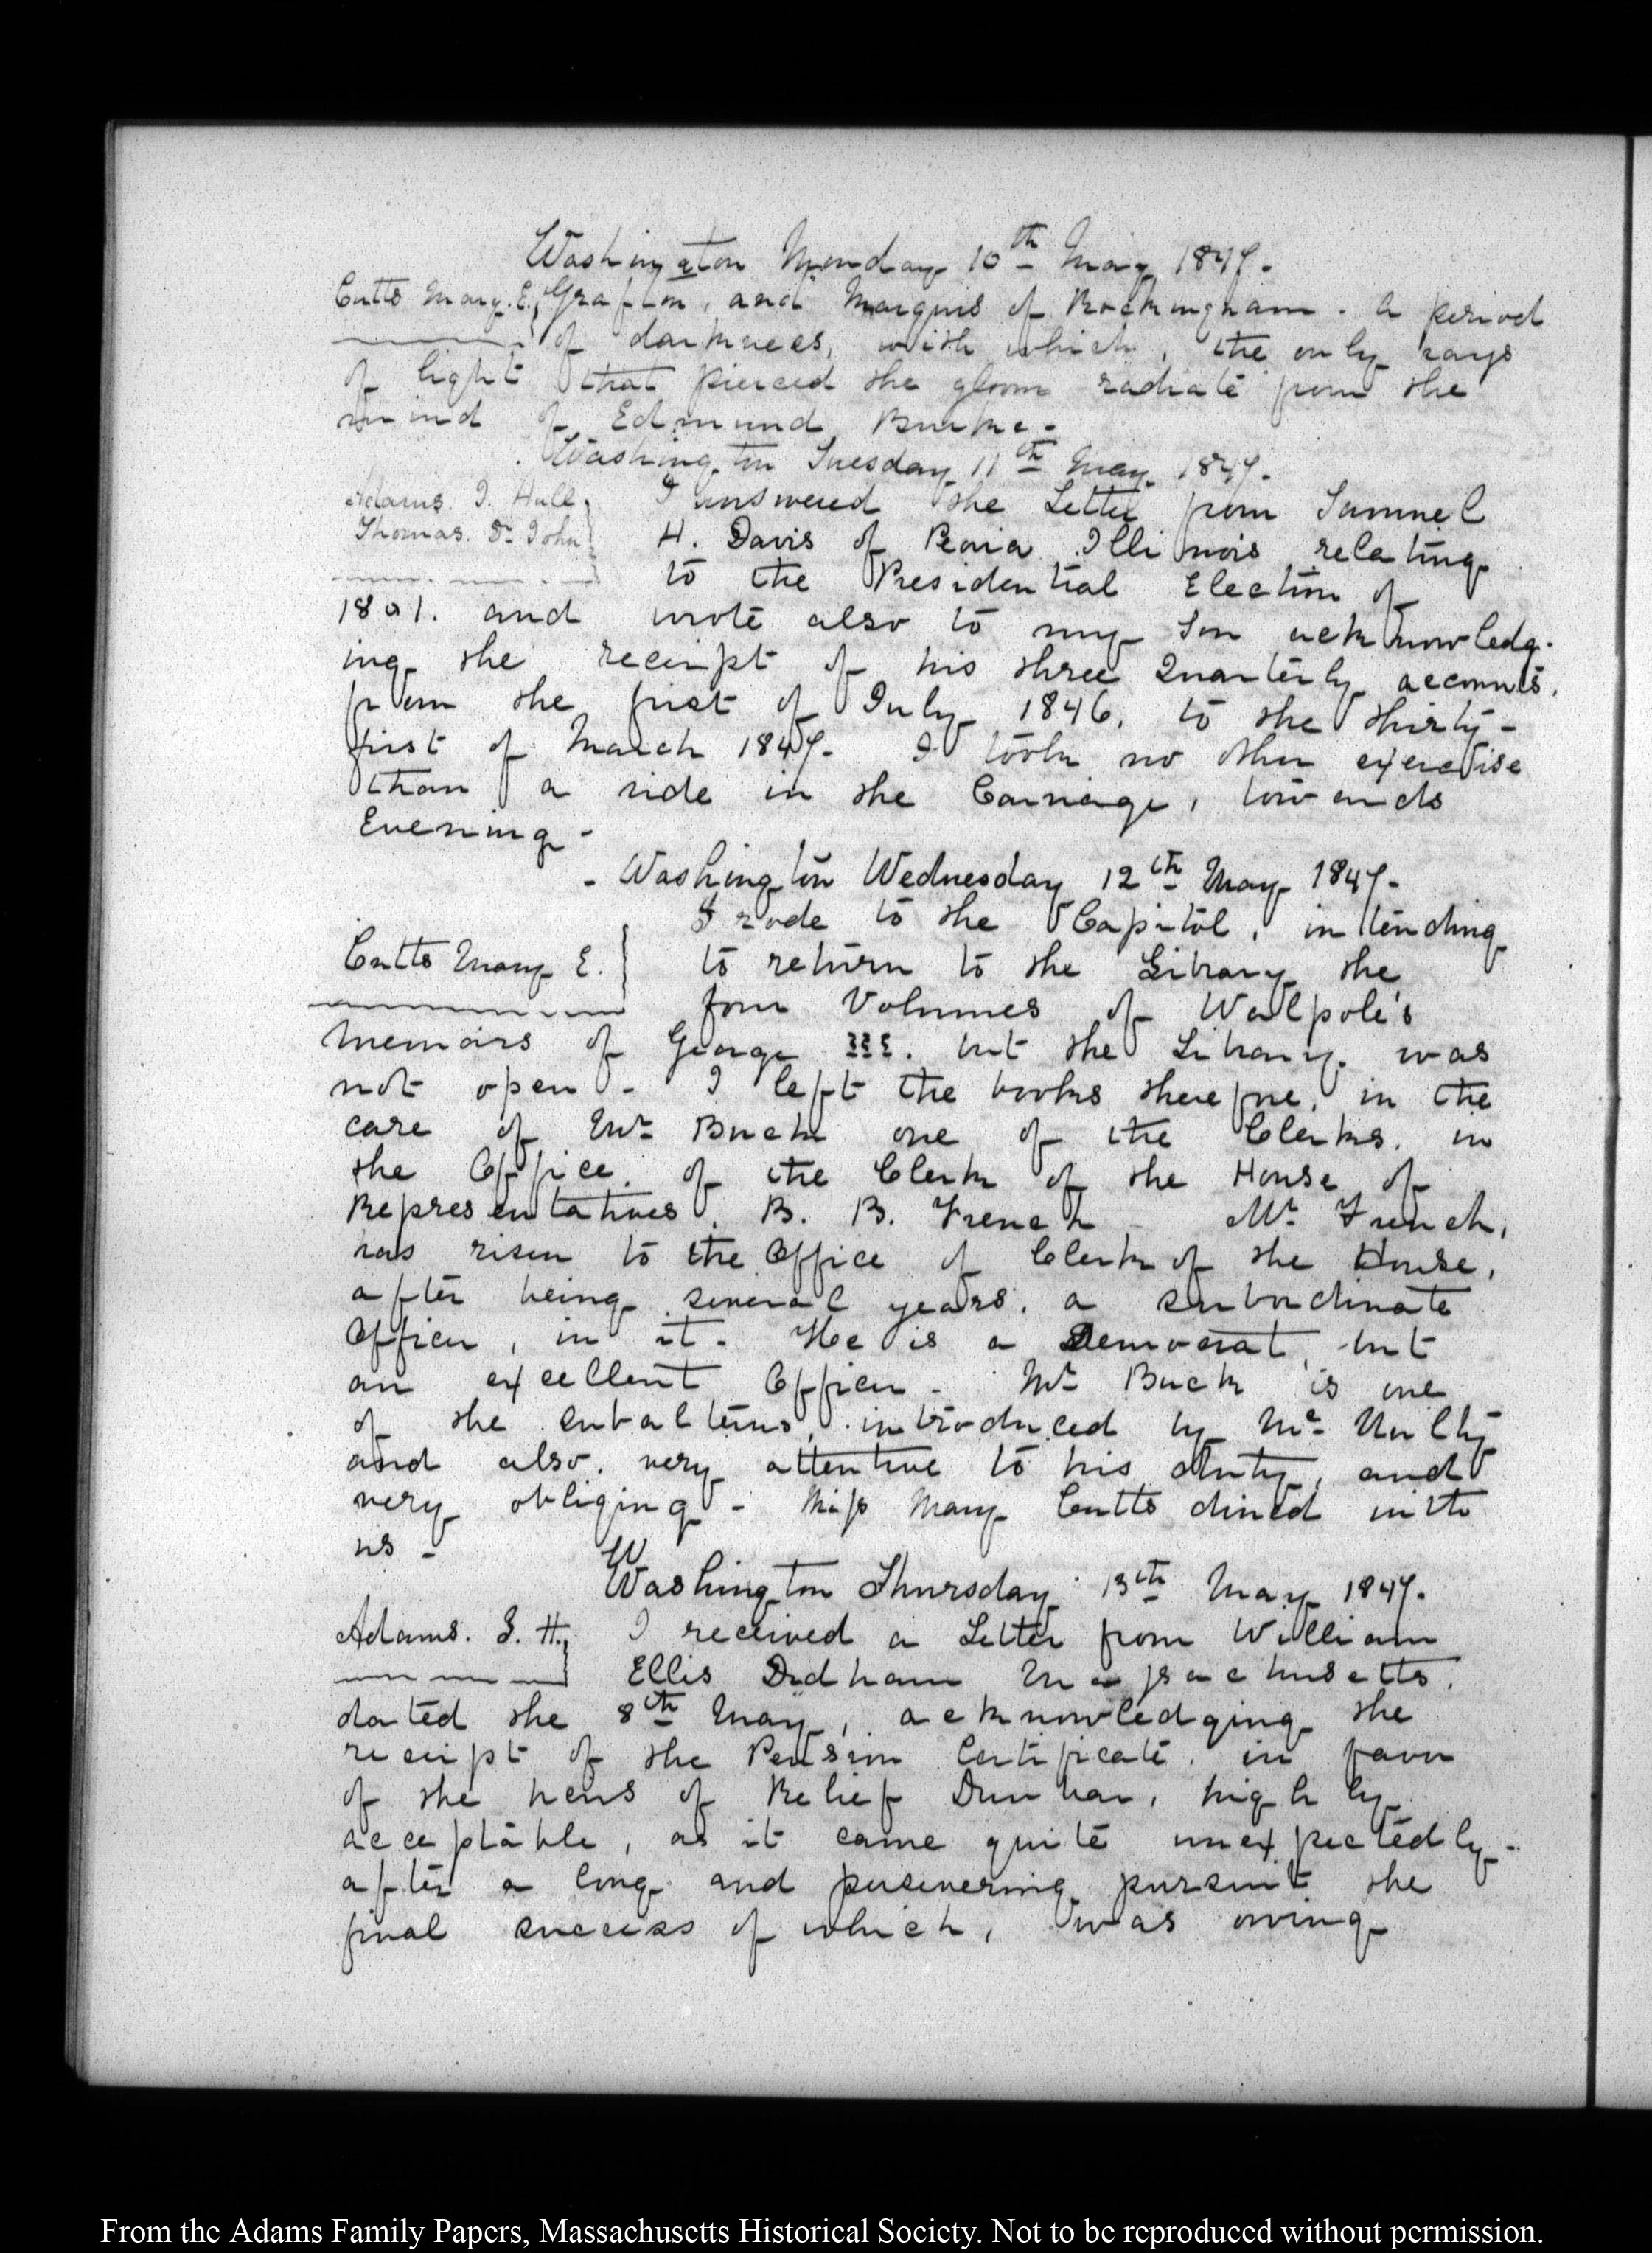 Washington Monday 10th May 1847.
Cutts Mary. E. Grafton, and Marquis of Rockingham. A period
of darkness, with which, the only rays
of light that pierced the gloom radiate from the
mind of Edmund Burke-
Washington Tuesday 11th May 1847.
Adams. I. Hull I answered the Letter from Samuel
Thomas. Dr John H. Davis of Peoria Illinois relating
to the Presidential Election of
1801. and wrote also to my Son acknowledg-
ing the receipt of his three Quarterly accounts,
from the first of July 1846, to the thirty-
first of March 1847. I took no other exercise
than a ride in the Carriage, towards
Evening-
- Washington Wednesday 12th May 1847-
I rode to the Capitol, intending
Cutts Mary E. to return to the Library the
four Volumes of Walpole's
memoirs of George III. but the Library was
not open - I left the books therefore, in the
care of Mr Buck one of the Clerks. in
the Office. of the Clerk of the House of
Representatives. B. B. French - Mr French,
has risen to the Office of Clerk of the House,
after being several years. a subordinate
Officer, in it. He is a Democrat, but
an excellent Officer - Mr Buck is one
of the subalterns, introduced by Mc Nulty
and also. very attentive to his duty, and
very obliging - Miss Mary Cutts dined with
us -
Washington Thursday 13th May 1847.
Adams. I. H. I received a Letter from William
Ellis Dedham Massachusetts.
dated the 8th May, acknowledging the
receipt of the Pension Certificate. in favor
of the heirs of Relief Dunbar, highly
acceptable, as it came quite unexpectedly-
after a long and persevering pursuit the
final success of which, was owing
From the Adams Family Papers, Massachusetts Historical Society. Not to be reproduced without permission.